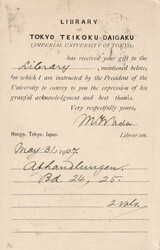 LIBRARY
OF
TOKYO TEIKOKU-DAIGAKU
(IMPERIAL UNIVERSITY OF TOKYO)
has received your gift to the
Library, mentioned below,
for which I am instructed by the President of the
University to convey to you the expression of his
grateful acknowledgment and best thanks.
Very respectfully yours,
M. Wada
Librarian.
Hongo, Tokyo, Japan.
May 31, 1907
Abhandlungen.
Bd. 24, 25.
2 vols.